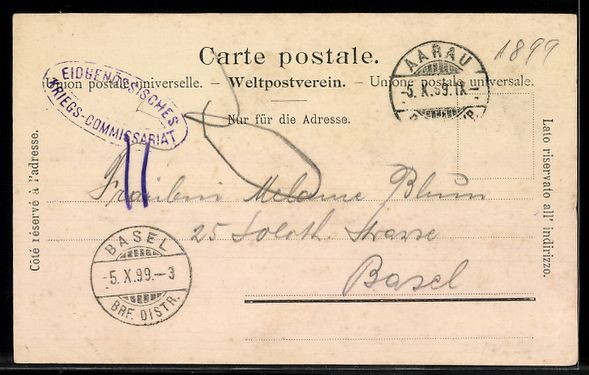 1899
Carte postale.
Union postale universelle. – Weltpostverein. – Unione postale universale.
Nur für die Adresse.
EIDGENÖSSISCHES
KRIEGS-COMMISSARIAT
AARAU
5.X.99.IX–
Côté réservé à l'adresse.
Lato riservato all' indirizzo.
Fräulein Melanie Blum
25 Soloth. Strasse
Basel
BASEL
5.X.99.–3
BRF. DISTR.